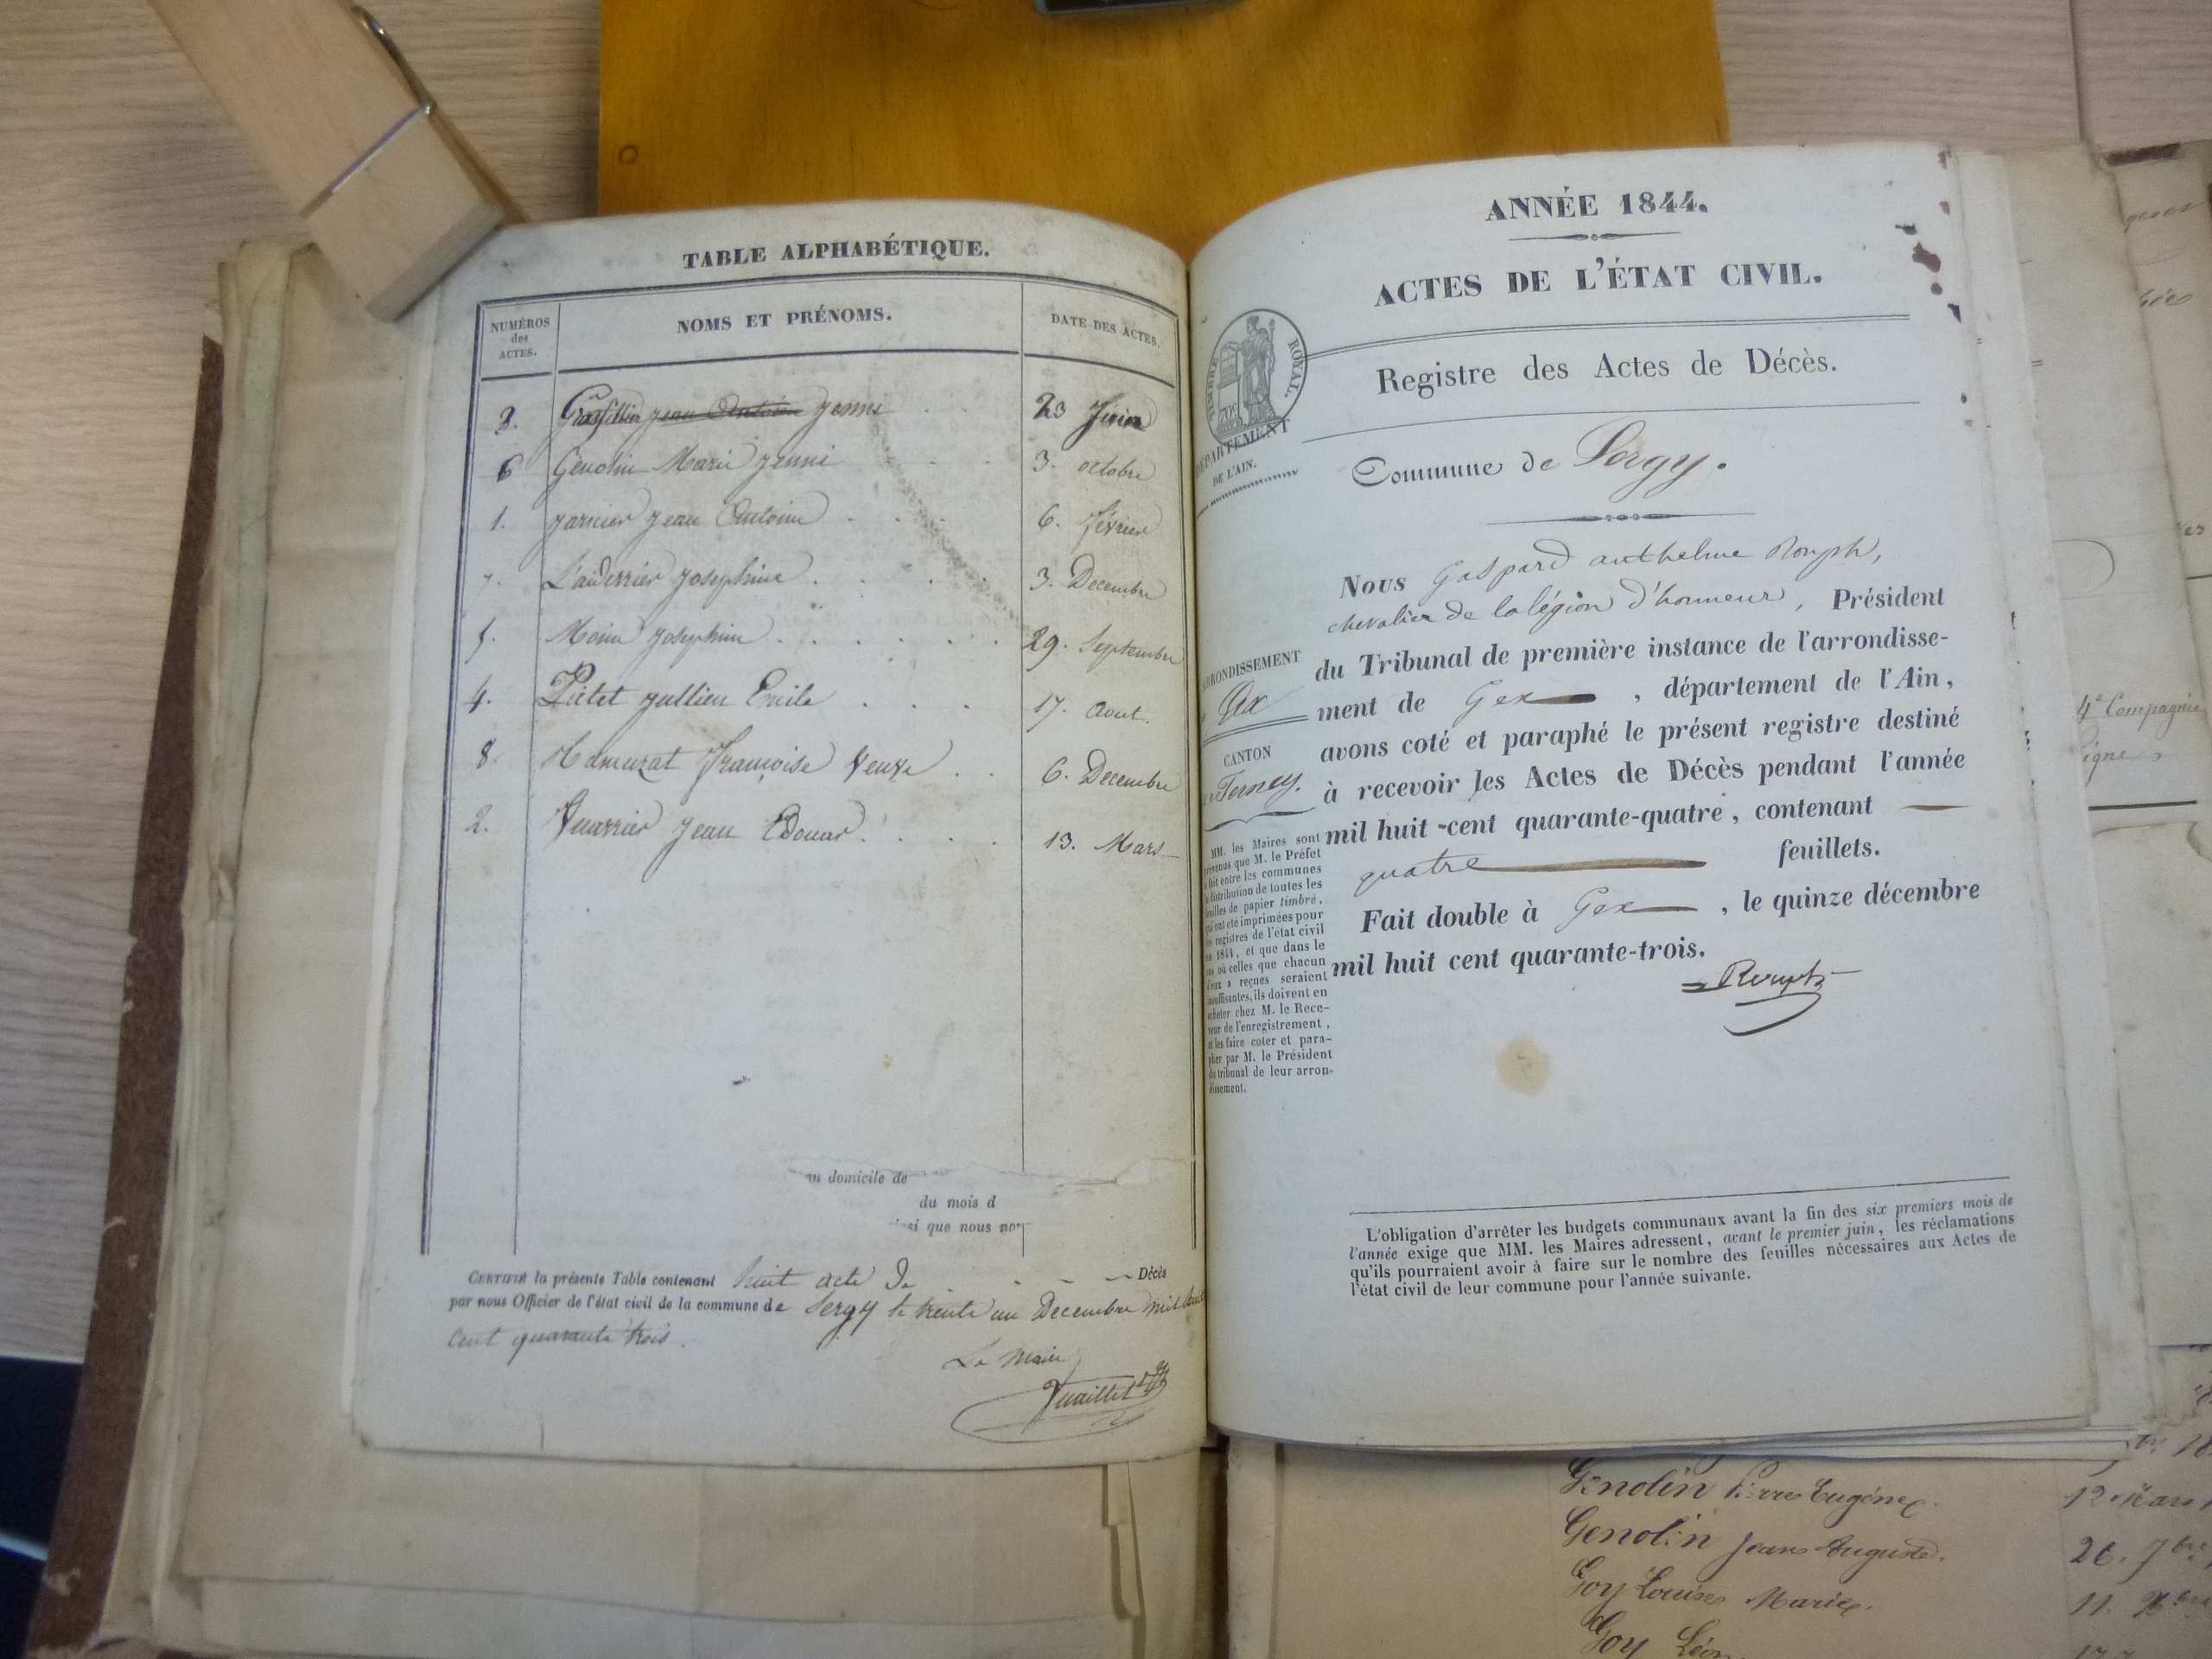 TABLE ALPHABÉTIQUE.
NUMÉROS des ACTES.
NOMS ET PRÉNOMS.
DATE DES ACTES.
3. jean Antoine jenni 23 Juin
6 Genolin Marie jenni 3. octobre
1. jarnier jean Antoine 6. février
7. Josephine 3. Decembre
5. Josephine 29. Septembre
4. Pictet jullien Emile 17. Aout.
8. françoise veuve 6. Decembre
2. jean Edouar 13. Mars
au domicile de
du mois d
si que nous
CERTIFIÉ la présente Table contenant huit acte De Décès
par nous Officier de l'état civil de la commune de Sergy le trente un Decembre mil huit
cent quarante trois.
Le Maire
ANNÉE 1844.
ACTES DE L'ÉTAT CIVIL.
TIMBRE ROYAL.
70c
DÉPARTEMENT
DE L'AIN.
Registre des Actes de Décès.
Commune de Sergy.
Nous Gaspard anthelme Rouph,
chevalier de la légion d'honneur, Président
du Tribunal de première instance de l'arrondisse-
ment de Gex, département de l'Ain,
avons coté et paraphé le présent registre destiné
à recevoir les Actes de Décès pendant l'année
mil huit-cent quarante-quatre, contenant
quatre feuillets.
Fait double à Gex, le quinze décembre
mil huit cent quarante-trois.
ARRONDISSEMENT
CANTON
Ferney.
MM. les Maires sont
prévenus que M. le Préfet
a fait entre les communes
la distribution de toutes les
feuilles de papier timbré,
qui ont été imprimées pour
les registres de l'état civil
en 1844, et que dans le
cas où celles que chacun
d'eux a reçues seraient
insuffisantes, ils doivent en
acheter chez M. le Rece-
veur de l'enregistrement,
et les faire coter et para-
pher par M. le Président
du tribunal de leur arron-
dissement.
L'obligation d'arrêter les budgets communaux avant la fin des six premiers mois de
l'année exige que MM. les Maires adressent, avant le premier juin, les réclamations
qu'ils pourraient avoir à faire sur le nombre des feuilles nécessaires aux Actes de
l'état civil de leur commune pour l'année suivante.
4e Compagnie
Genolin Pierre Eugène. 12. Mars
Genolin Jean Auguste. 26. 7bre
Goy Louise Marie. 11.
Goy